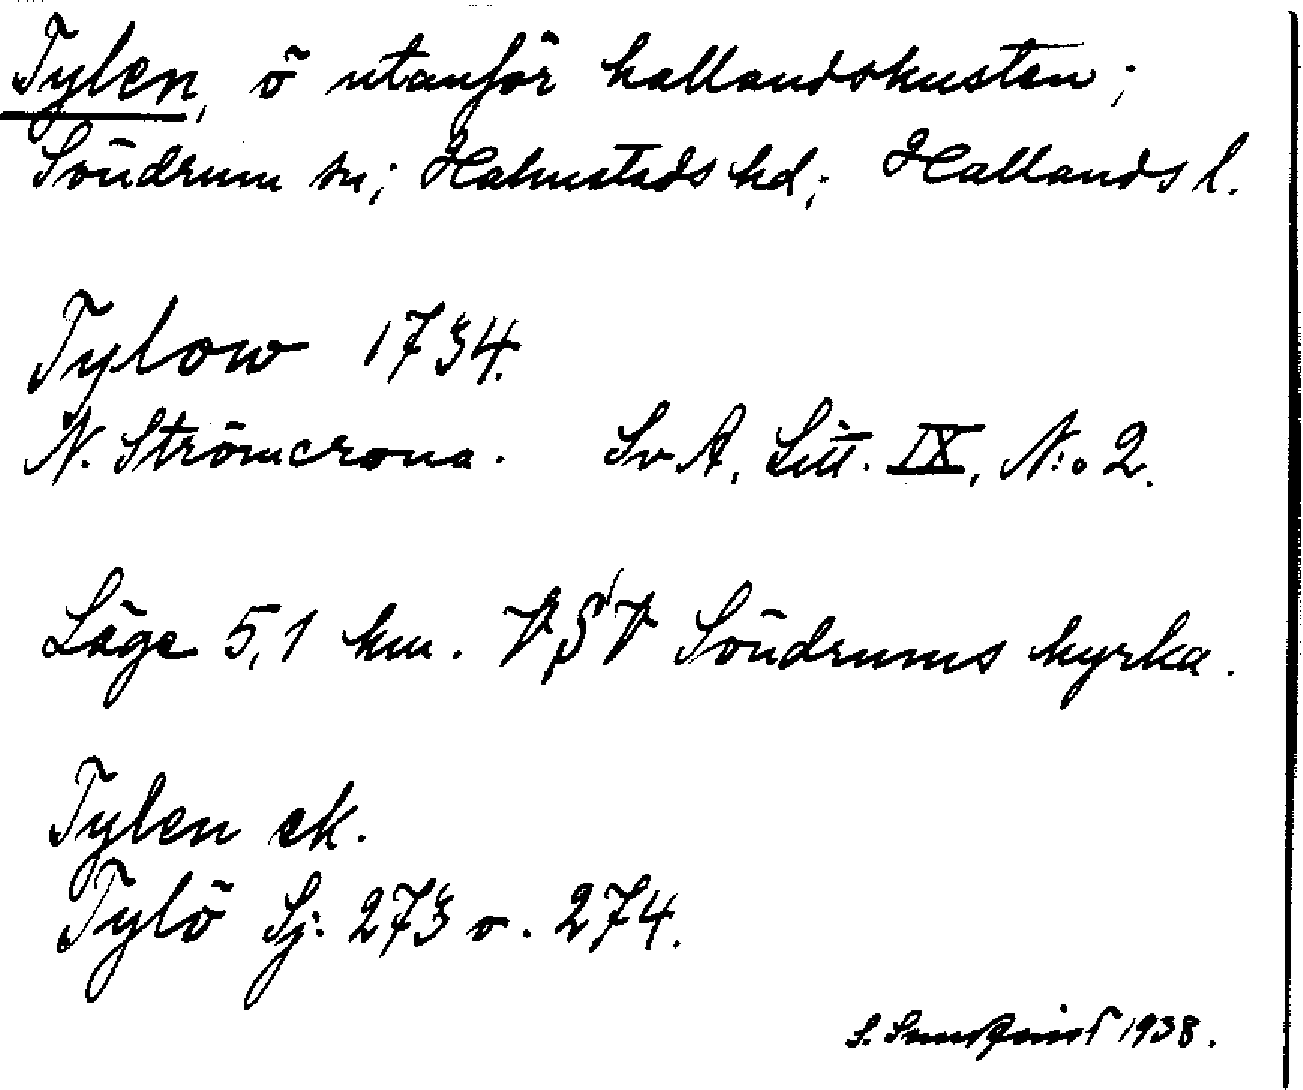 Tylen, ö utanför hallandskusten;
Söndrum sn; Halmstads hd; Hallands l.
Tylow 1734.
N. Strömcrona. Sv A, Litt. IX, N:o 2.
Läge 5,1 km. VSV Söndrums kyrka.
Tylen ek.
Tylö Sj. 273 o. 274.
S. Sundqvist 1938.